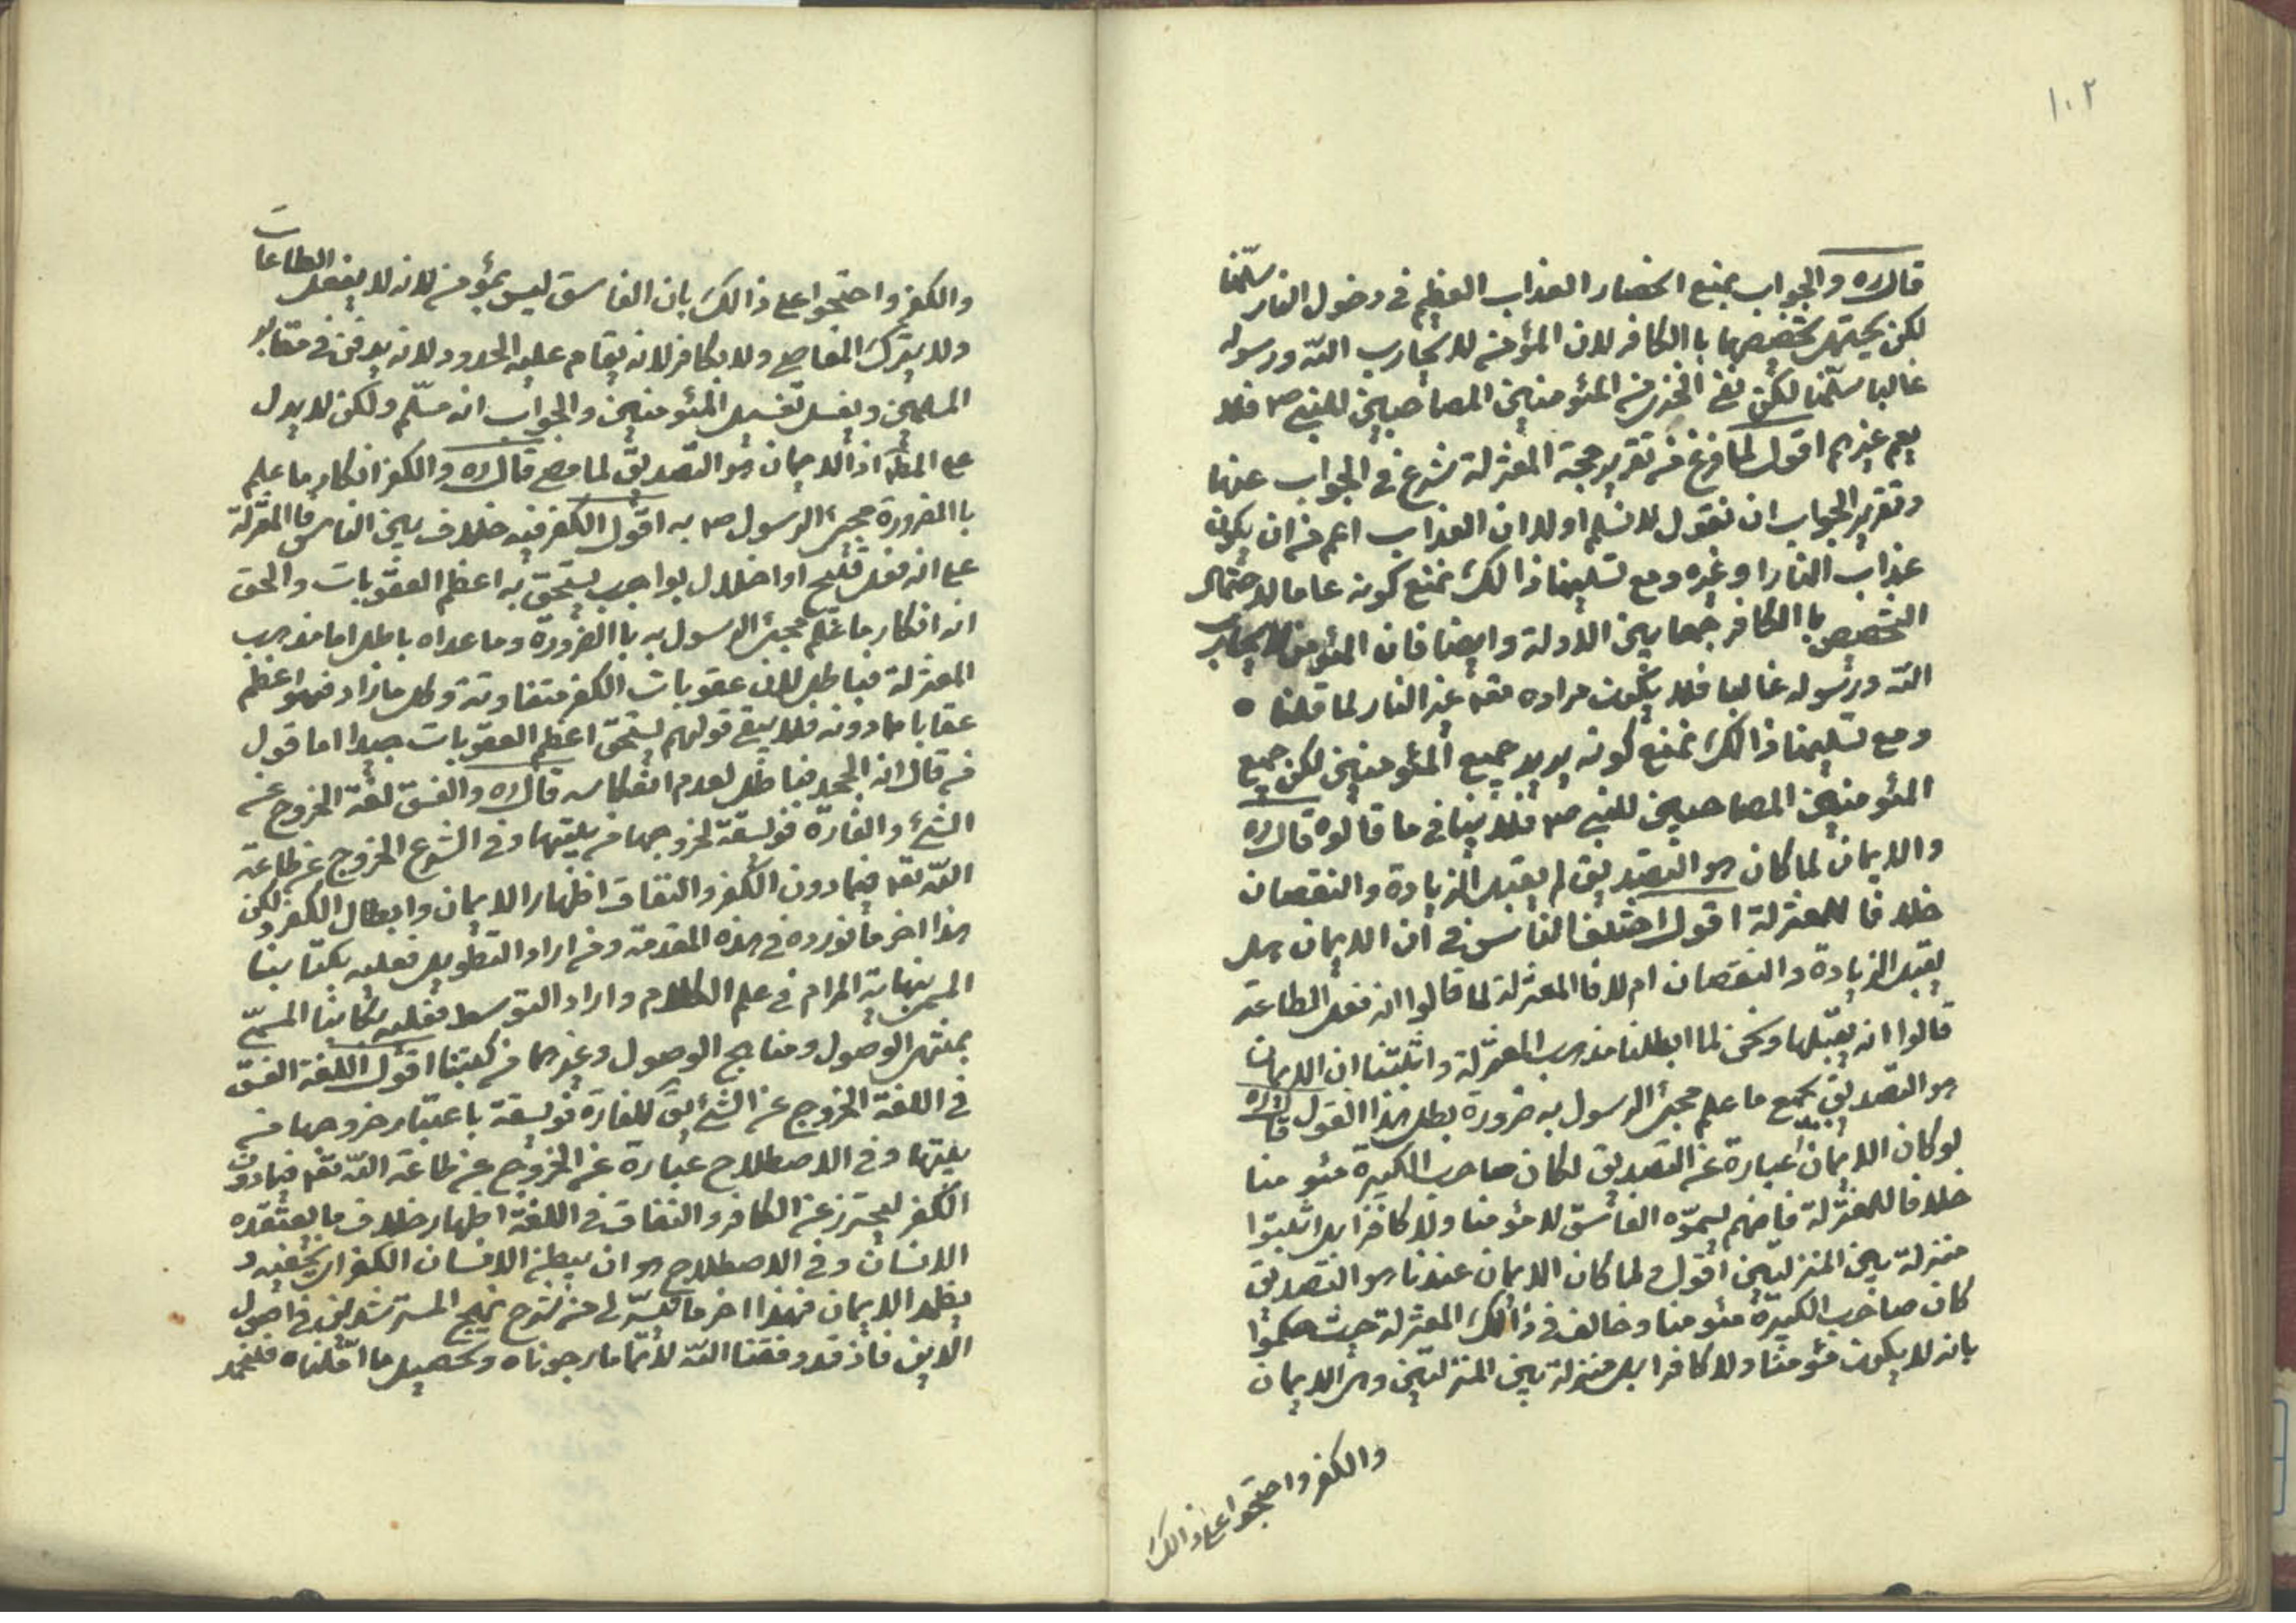 ١٠٢
قال ره والجواب بمنع انحصار العذاب العظيم فى دخول النار سلّمنا
لكن يحتمل تخصيصها باالكافر لان المؤمن لا يحارب اللّه ورسوله
غالبا سلّمنا لكن نفى الخزى من المئومنين المصاحبين للنبى ص فلا
يعم غيرهم اقول لما فرغ من تقرير حجة المعتزلة شرع فى الجواب عنها
وتقرير الجواب ان نقول لا نسلم اولا ان العذاب اعم من ان يكون
عذاب النار او غيره ومع تسليمنا ذالك نمنع كونه عاما لاحتمال
التخصيص باالكافر جمعا بين الادلة وايضا فان المئومن لا يحارب
اللّه ورسوله غالبا فلا يكون مراده تعه غير النار لما قلنا ه
ومع تسليمنا ذالك نمنع كونه يريد جميع المئومنين لكن جميع
المئومنين المصاحبين للنبى ص فلا ينافى ما قالوه قال ره
والايمان لما كان هو التصديق لم يقبل الزيادة والنقصان
خلافا للمعتزلة اقول اختلف الناس فى ان الايمان هل
يقبل الزيادة والنقصان ام لا فا المعتزلة لما قالوا انه فعل الطاعة
قالوا انه يقبلها ونحن لما ابطلنا مذهب المعتزلة واثبتنا ان الايمان
هو التصديق بجميع ما علم مجئ الرسول به ضرورة بطل هذا القول قال ره
لو كان الايمان عبارة عن التصديق لكان صاحب الكبيرة مئومنا
خلافا للمعتزلة فانهم يسمّوه الفاسق لا مئومنا ولا كافرا بل اثبتوا
منزلة بين المنزلتين اقول لما كان الايمان عندنا هو التصديق
كان صاحب الكبيرة مئومنا وخالف فى ذالك المعتزلة حيث حكموا
بانه لا يكون مئومنا ولا كافرا بل منزلة بين المنزلتين وهى الايمان
والكفر واحتجوا على ذالك
والكفر واحتجوا على ذالك بان الفاسق ليس بمؤمن لانه لا يفعل الطاعات
ولا يترك المعاصى ولا بكافر لانه يقام عليه الحدود لانه يدفن فى مقابر
المسلمين ويغسل تغسيل المئومنين والجواب انه مسلّم ولكن لا يدل
على المطّ اذ الايمان هو التصديق لما مضى قال ره والكفر انكار ما علم
باالضرورة مجئ الرسول ص به اقول الكفر فيه خلاف بين الناس فا المعتزلة
على انه فعل قبيح او اخلال بواجب يستحق به اعظم العقوبات والحق
انه انكار ما علم مجئ الرسول به باالضرورة وما عداه باطل اما مذهب
المعتزلة فباطل لان عقوبات الكفر متفاوتة وكل ما زاد فهو اعظم
عقابا مما دونه فلا يبقى قولهم يستحق اعظم العقوبات جيدا اما قول
من قال انه الجحد فباطل لعدم انعكاسه قال ره والفسق لغة الخروج عن
الشئ والفارة فويسقة لخروجها من بيتها وفى الشرع الخروج عن طاعة
اللّه تعه فيما دون الكفر والنفاق اظهار الايمان وابطان الكفر وليكن
هذا اخر ما نورده فى هذه المقدمة ومن اراد التطويل فعليه بكتابنا
المسمى بنهاية المرام فى علم الكلام واراد التوسط فعليه بكتابنا المسمّى
بمنتهى الوصول ومناهج الوصول وغيرهما من كتبنا اقول اللغة الفسق
فى اللغة الخروج عن الشئ يق للفارة فويسقة باعتبار خروجها من
بيتها وفى الاصطلاح عبارة عن الخروج عن طاعة اللّه تعه فيما دون
الكفر ليحترز عن الكافر والنفاق فى اللغة اظهار خلاف ما يعتقده
الانسان وفى الاصطلاح هو ان يبطن الانسان الكفر اى يخفيه و
يظهر الايمان فهذا اخر ما تيسّر لى من شرح نهج المسترشدين فى اصول
الدين فاذ قد وفقنا اللّه لاتمام ما رجوناه وتحصيل ما امّلناه فلنحمد